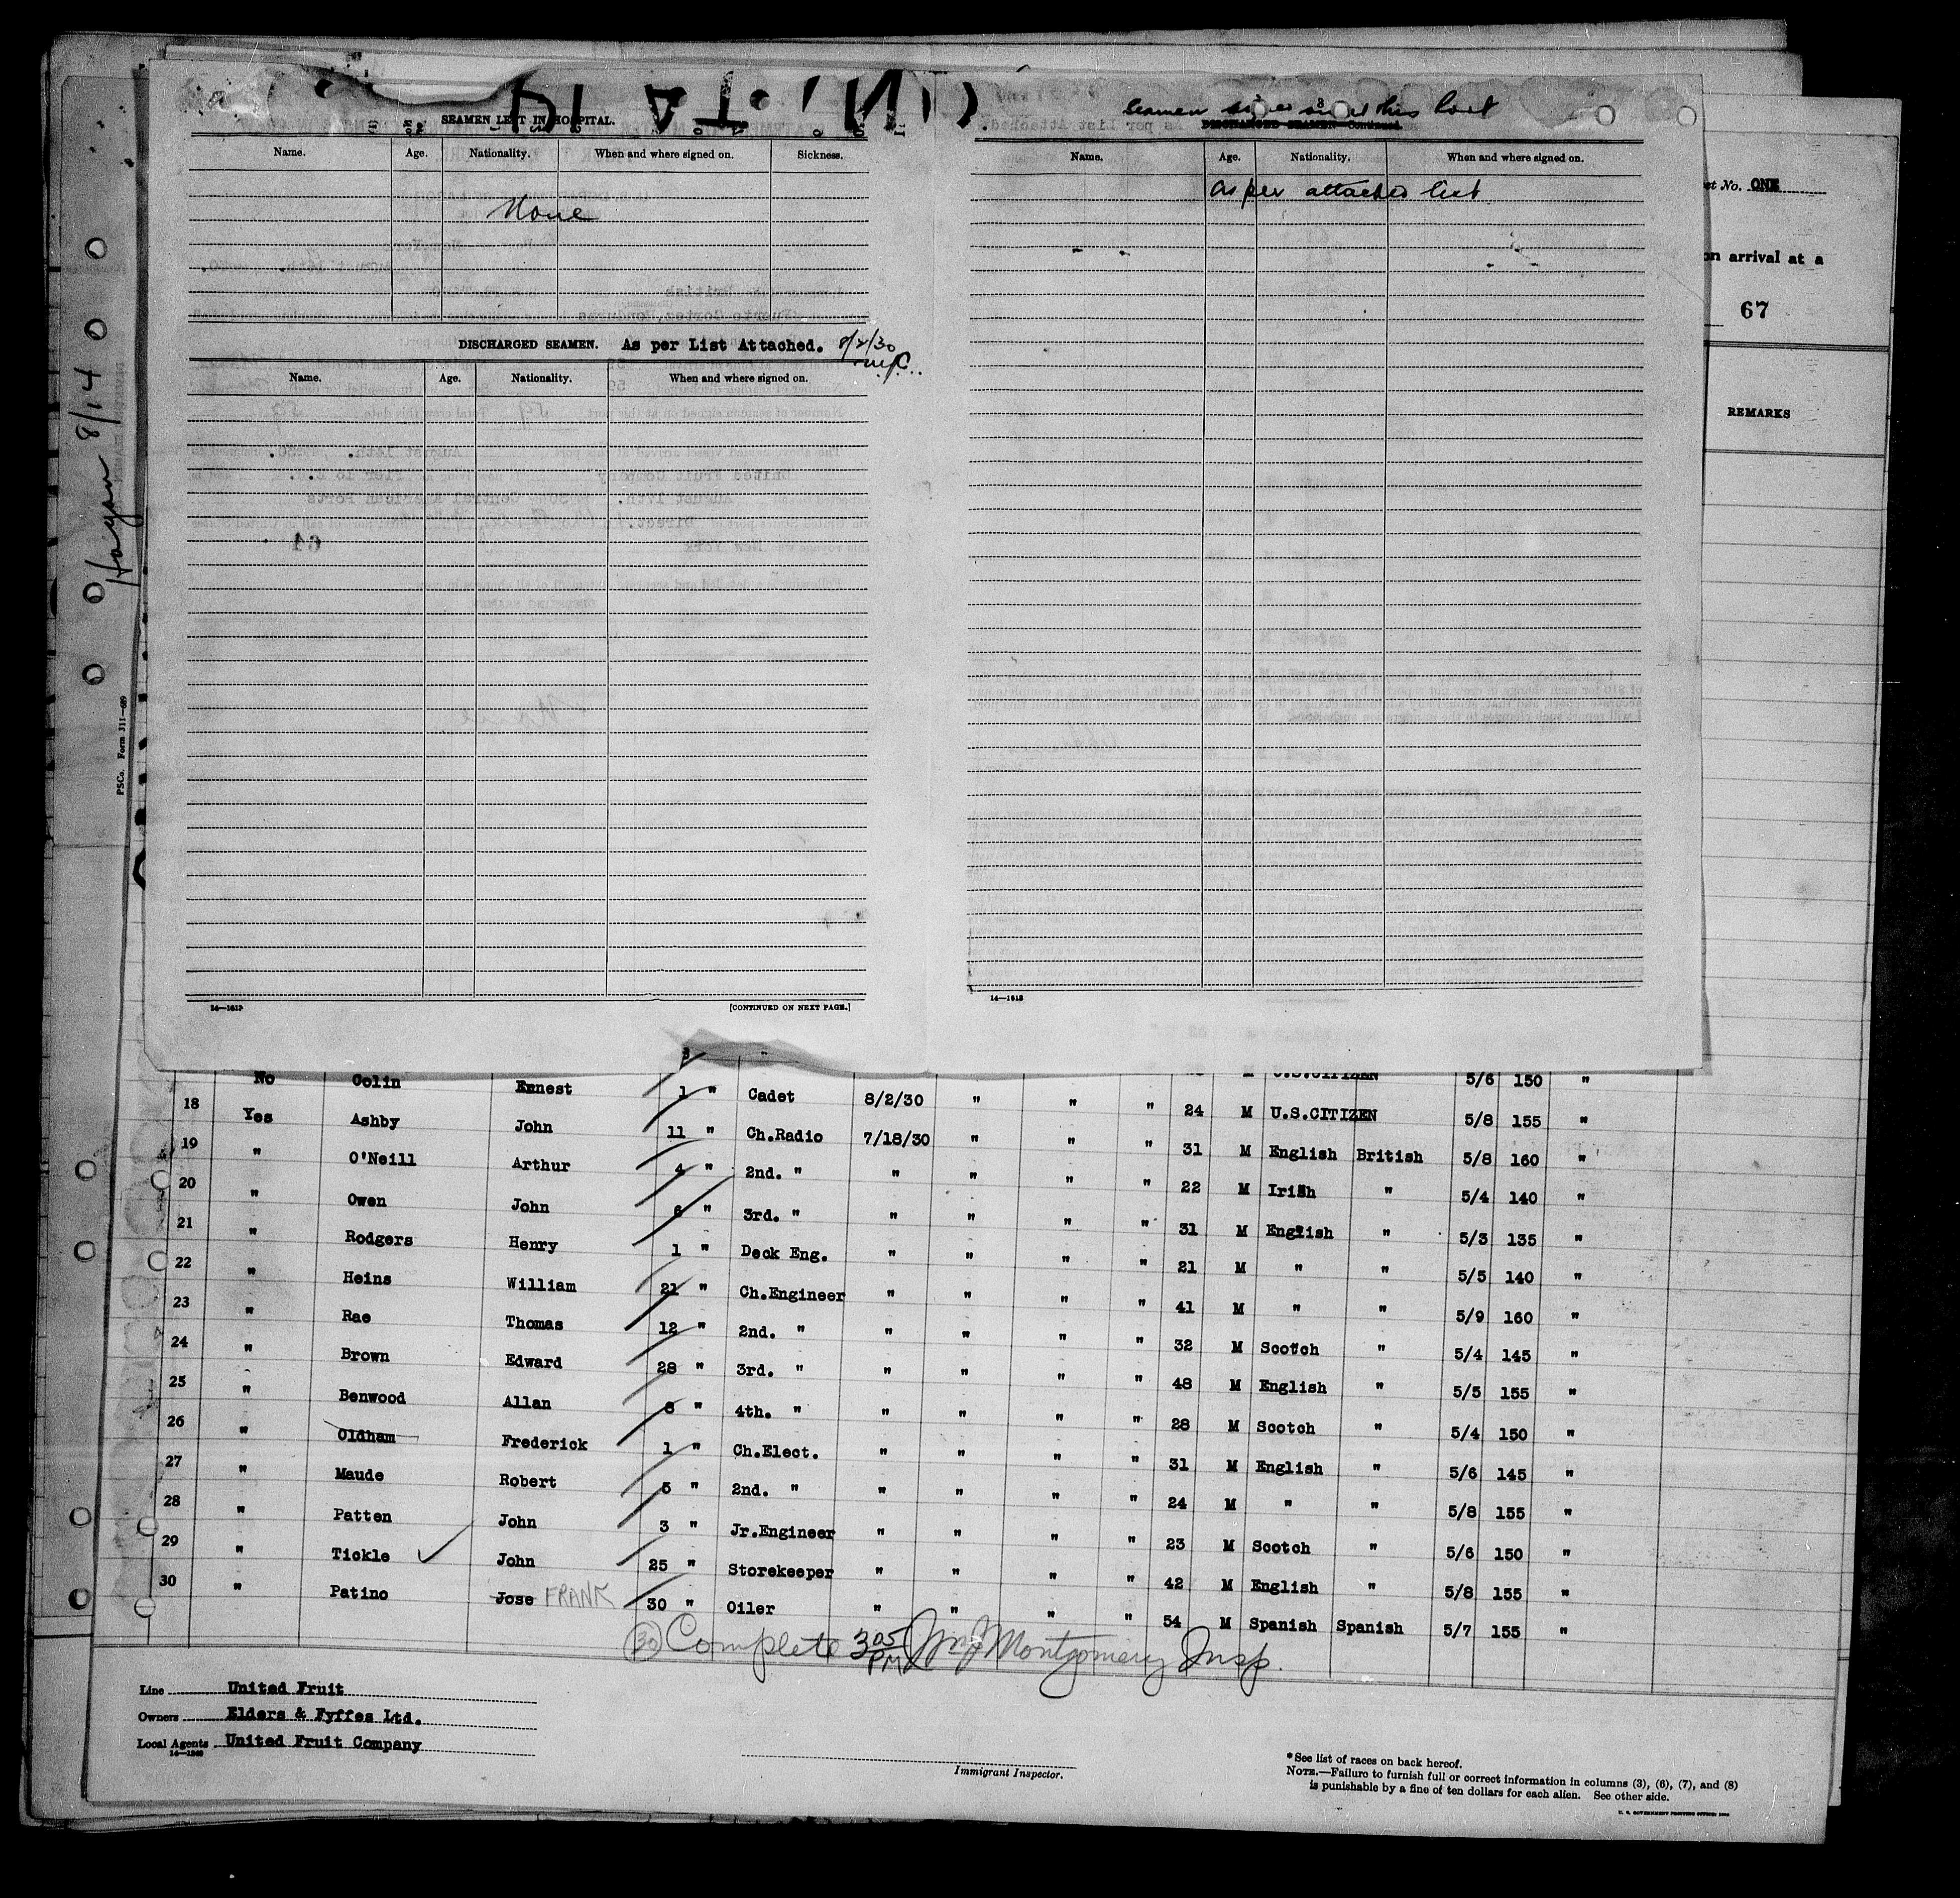 SEAMEN LEFT IN HOSPITAL.
Name. Age. Nationality. When and where signed on. Sickness.
None
DISCHARGED SEAMEN. As per List Attached. 8/2/30
Name. Age. Nationality. When and where signed on.
14—1613 [CONTINUED ON NEXT PAGE.]
Seamen this Port
DISCHARGED SEAMEN—Continued.
Name. Age. Nationality. When and where signed on.
as per attached list
14—1613
No. ONE
on arrival at a
67
REMARKS
Hayen 8/14
PSCo. Form 311—689
No Colin Ernest 1 " Cadet 8/2/30 " " " 24 M U.S.CITIZEN 5/6 150 "
18 Yes Ashby John 11 " Ch.Radio 7/18/30 " " " 31 M English British 5/8 155 "
19 " O'Neill Arthur 4 " 2nd. " " " " " 22 M Irish " 5/8 160 "
20 " Owen John 6 " 3rd. " " " " " 31 M English " 5/4 140 "
21 " Rodgers Henry 1 " Deck Eng. " " " " 21 M " " 5/3 135 "
22 " Heins William 21 " Ch.Engineer " " " " 41 M " " 5/5 140 "
23 " Rae Thomas 12 " 2nd. " " " " " 32 M Scotch " 5/9 160 "
24 " Brown Edward 28 " 3rd. " " " " " 48 M English " 5/4 145 "
25 " Benwood Allan 8 " 4th. " " " " " 28 M Scotch " 5/5 155 "
26 " Oldham Frederick 1 " Ch.Elect. " " " " 31 M English " 5/4 150 "
27 " Maude Robert 5 " 2nd. " " " " " 24 M " " 5/6 145 "
28 " Patten John 3 " Jr.Engineer " " " " 23 M Scotch " 5/8 155 "
29 " Tickle John 25 " Storekeeper " " " " 42 M English " 5/6 150 "
30 " Patino Jose FRANK 30 " Oiler " " " " 54 M Spanish Spanish 5/8 155 "
5/7 155 "
30 Complete 3 05 PM Wm J Montgomery Insp.
Line United Fruit
Owners Elders & Fyffes Ltd.
Local Agents United Fruit Company
14—1240
Immigrant Inspector.
*See list of races on back hereof.
NOTE.—Failure to furnish full or correct information in columns (3), (6), (7), and (8)
is punishable by a fine of ten dollars for each alien. See other side.
U. S. GOVERNMENT PRINTING OFFICE